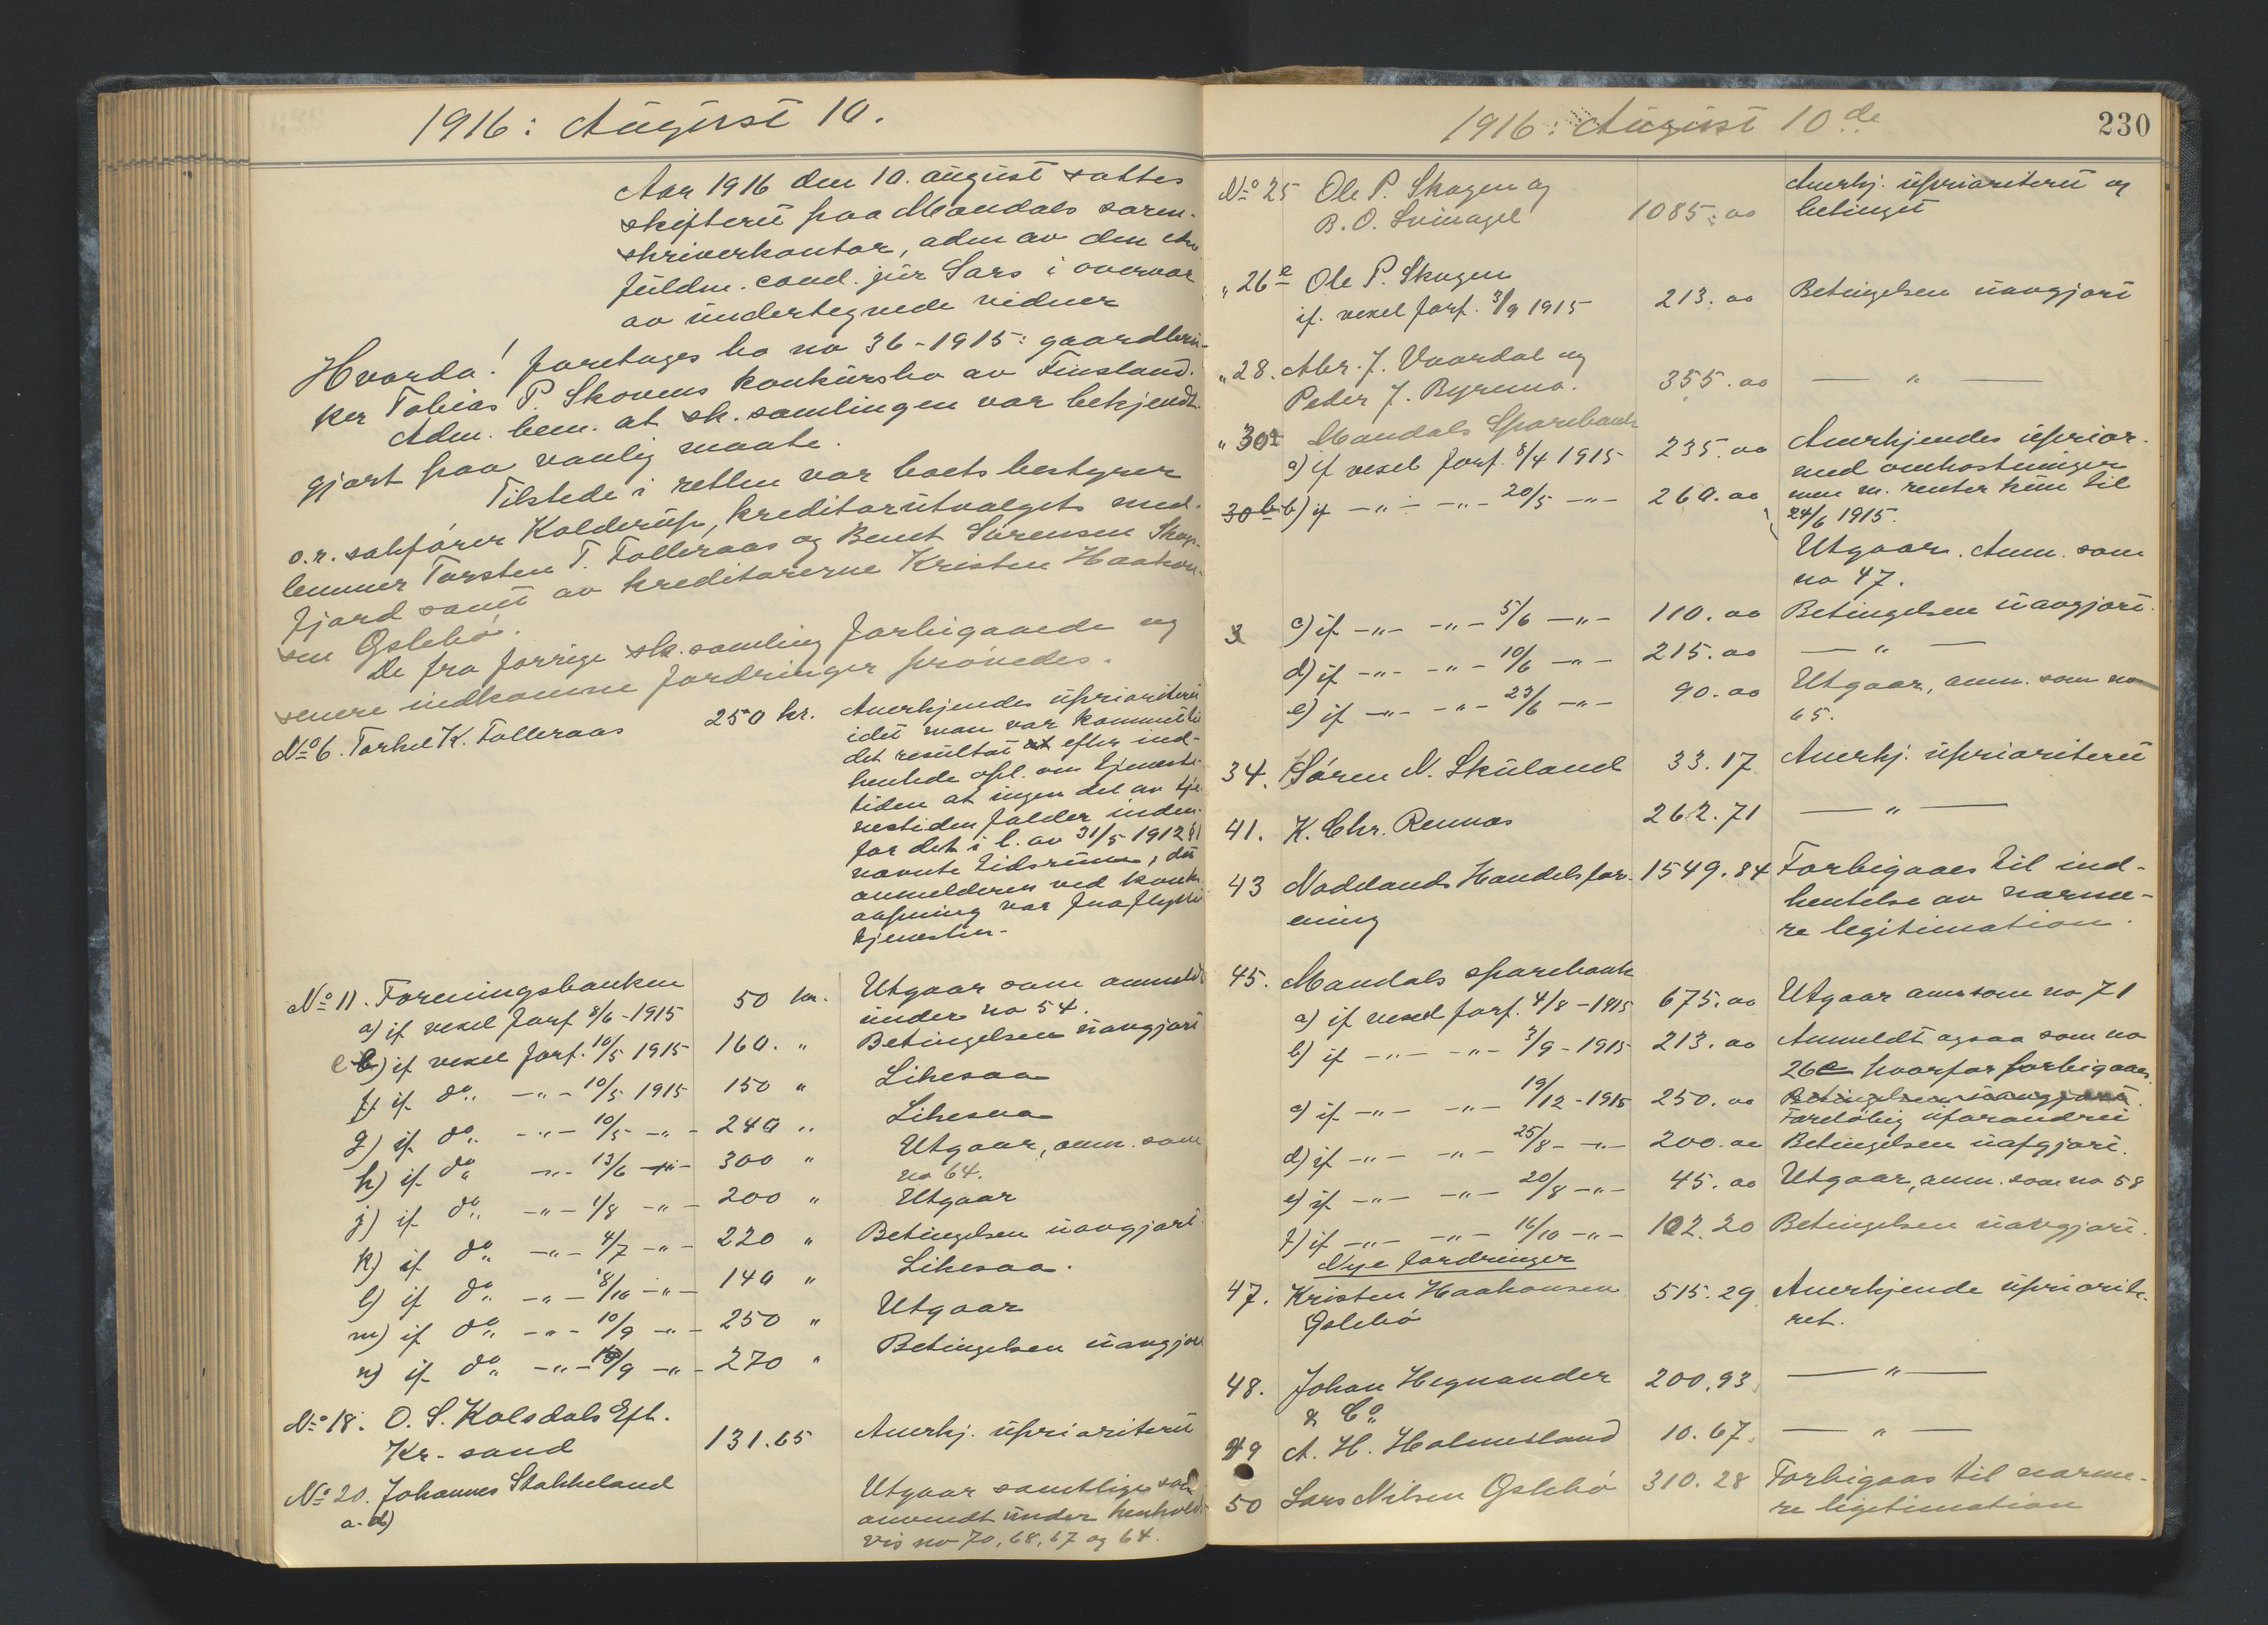 1916: August 10.
Aar 1916 den 10. august sattes
skifteret paa Mandals soren-
skriverkontor, adm av den
fuldm. cand. jur Sars i overvær
av undertegnede vidner
Hvorda! foretages bo no 36-1915: gaardbru-
ker Tobias P. Skovens konkursbo av Finsland.
Adm. bem. at sk. samlingen var bekjendt-
gjort paa vanlig maate.
Tilstede i retten var boets bestyrer
o.r. sakfører Kolderup, kreditorutvalgets med-
lemmer Torsten T. Folleraas og Bernt Sørensen
fjord samt av kreditorerne Kristen Haakon-
sen Øslebø.
De fra forrige sk. samling forbigaaede og
senere indkomne fordringer prøvedes.
No 6. Torkel K. Folleraas 250 kr. Anerkjendes uprioriteret
idet man var kommet til
det resultat at efter ind-
hentede opl. om tjeneste-
tiden at ingen del av tje-
nestiden falder inden-
for det i l. av 31/5 1912 §1
nævnte tidsrum, da
anmelderen ved konk.
aapning var fraflyttet
tjenesten.
No 11. Foreningsbanken
a) if vexel forf 8/6-1915 50 kr. Utgaar som anmeldt
under no 54.
e) if vexel forf. 10/5 1915 160. " Betingelsen uavgjort
f) if do -"- 10/5 1915 150 " Likesaa
g) if do -"- 10/5 -"- 240 " Likesaa
h) if do -"- 13/6 -"- 300 " Utgaar, anm. som
no 64.
j) if do -"- 1/8 -"- 200 " Utgaar
k) if do -"- 4/7 -"- 220 " Betingelsen uavgjort
l) if do -"- 8/10 -"- 140 " Likesaa.
m) if do -"- 10/9 -"- 250 " Utgaar
n) if do -"- /9 -"- 270 " Betingelsen uavgjort
No 18. O. S. Kalsdals Eft.
Kr-sand 131.65 Anerkj. uprioriteret
No 20. Johannes Stakkeland Utgaar samtlige som
a-d) anmeldt under henholds-
vis no 70, 68, 67 og 64.
1916: August 10de 230
No 25 Ole P. Skogen og Anerkj. uprioriteret og
B. O. Svinagel 1085.00 betinget
" 26e Ole P. Skogen
if. vexel forf. 3/9 1915 213.00 Betingelsen uavgjort
" 28. Abr. J. Vaardal og
Peder J. Byremo. 355.00 — " —
" 30a Mandals Sparebank
a) if vexel forf. 8/4 1915 235.00 Anerkjendes uprior.
med omkostninger
30b b) if -"- -"- 20/5 -"- 260.00 men m. renter kun til
24/6 1915.
Utgaar. Anm. som
no 47.
c) if -"- -"- 5/6 -"- 110.00 Betingelsen uavgjort.
d) if -"- -"- 10/6 -"- 215.00 — " —
e) if -"- -"- 23/6 -"- 90.00 Utgaar, anm. som no
65.
34. Søren N. Skuland 33.17 Anerkj. uprioriteret
41. K. Chr. Rennas 262.71 — " —
43 Nodelands Handelsfor- 1549.84 Forbigaaes til ind-
ening hentelse av nærme-
re legitimation.
45. Mandals sparebank
a) if vexel forf. 4/8-1915 675.00 Utgaar anm som no 71
b) if -"- -"- 3/9-1915 213.00 Anmeldt ogsaa som no
26e hvorfor forbigaaes.
c) if -"- -"- 19/12-1915 250.00 Betingelsen uavgjort.
Foreløbig uforandret
d) if -"- -"- 25/8 -"- 200.00 Betingelsen uafgjort.
e) if -"- -"- 20/8 -"- 45.00 Utgaar, anm. som no 58
f) if -"- -"- 16/10 -"- 102.20 Betingelsen uavgjort.
Nye fordringer
47. Kristen Haakonsen 515.29 Anerkjende upriorite-
Øslebø ret.
48. Johan Hegnander 200.93 — " —
& Co
49 A. H. Holmesland 10.67. — " —
50 Lars Nilsen Øslebø 310.28 Forbigaas til nærme-
re legitimation